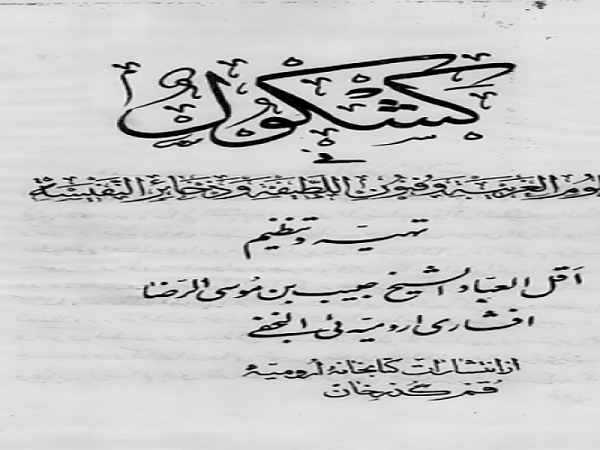 كشكول
في
لوم الغريبة وفنون اللطيفة وذخاير النفيسة
تهیه و تنظیم
اقل العباد الشيخ حبيب بن موسى الرضا
افشاری ارومیه ئی النجفی
از انتشارات کتابخانه ارومیه
قم گذرخان